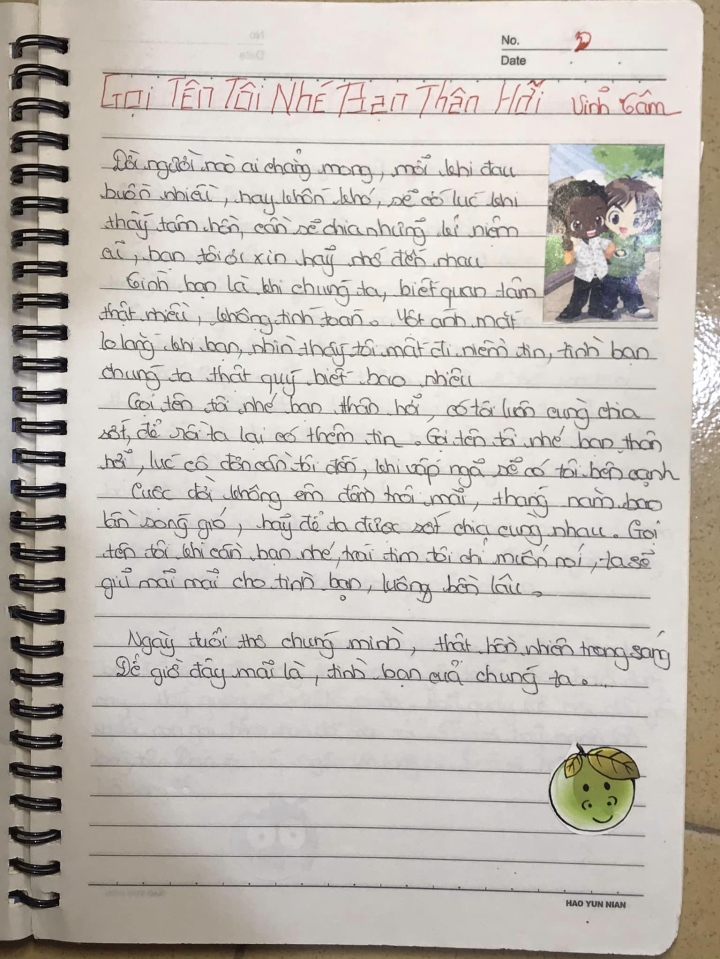 No. 2
Date
Gọi Tên Tôi Nhé Bạn Thân Hỡi Vinh Tâm
Đời người nào ai chẳng mong, mỗi khi đau
buồn nhiều, hay khốn khó, sẽ có lúc khi
thấy tâm hồn, cần sẻ chia những kỉ niệm
ai, bạn tôi ơi xin hãy nhớ đến nhau
Tình bạn là khi chúng ta, biết quan tâm
thật nhiều, không tính toán. Một ánh mắt
lo lắng khi bạn, nhìn thấy tôi mất đi niềm tin, tình bạn
chúng ta thật quý biết bao nhiêu
Gọi tên tôi nhé bạn thân hỡi, có tôi luôn cùng chia
sớt, để rồi ta lại có thêm tin. Gọi tên tôi nhé bạn thân
hỡi, lúc cô đơn cần tôi đến, khi vấp ngã sẽ có tôi bên cạnh
Cuộc đời không êm đềm trôi mãi, tháng năm bao
lần sóng gió, hãy để ta được sớt chia cùng nhau. Gọi
tên tôi khi cần bạn nhé, trái tim tôi chỉ muốn nói, ta sẽ
giữ mãi mãi cho tình bạn, luông bền lâu.
Ngày tuổi thơ chúng mình, thật hồn nhiên trong sáng
Để giờ đây mãi là, tình bạn của chúng ta....
HAO YUN NIAN